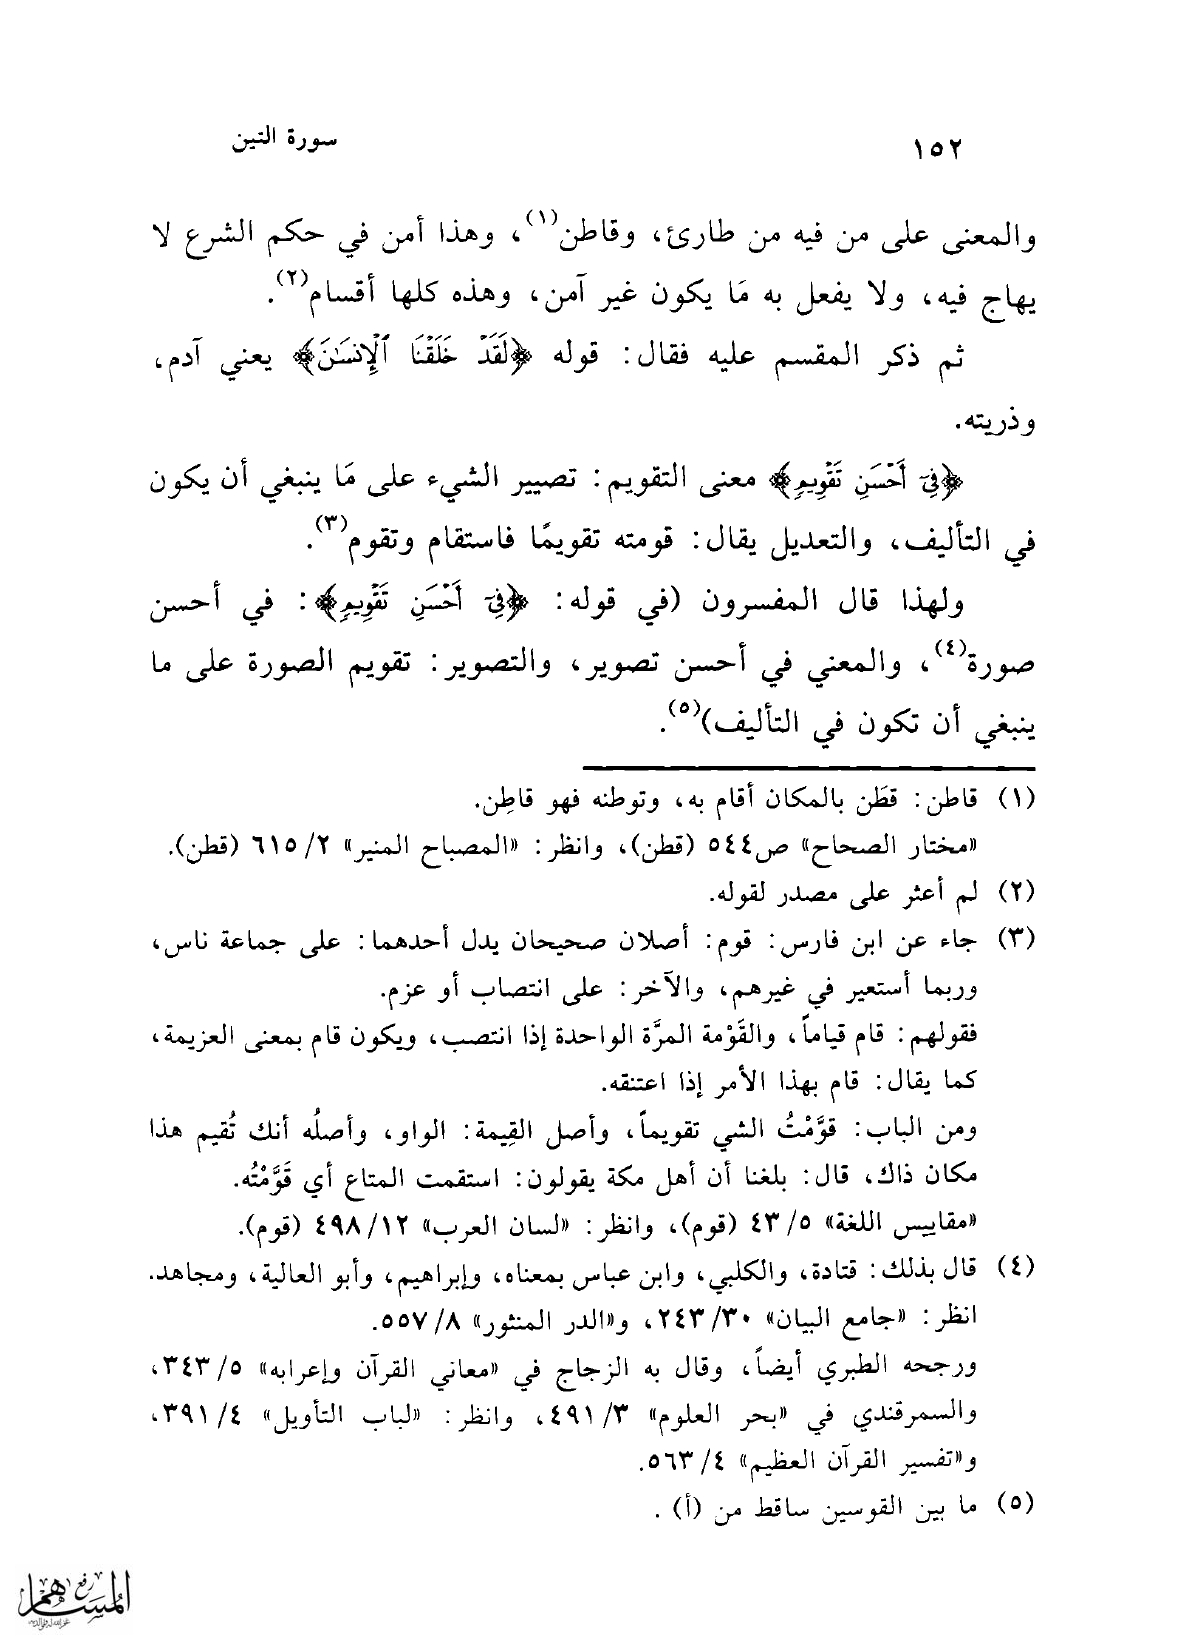 ١٥٢
سورة التين
والمعنى على من فيه من طارئ، وقاطن(١)، وهذا أمن في حكم الشرع لا
يهاج فيه، ولا يفعل به مَا يكون غير آمن، وهذه كلها أقسام(٢).
ثم ذكر المقسم عليه فقال: قوله ﴿لَقَدْ خَلَقْنَا ٱلْإِنسَٰنَ﴾ يعني آدم،
وذريته.
﴿فِىٓ أَحْسَنِ تَقْوِيمٍ﴾ معنى التقويم: تصيير الشيء على مَا ينبغي أن يكون
في التأليف، والتعديل يقال: قومته تقويمًا فاستقام وتقوم(٣).
ولهذا قال المفسرون (في قوله: ﴿فِىٓ أَحْسَنِ تَقْوِيمٍ﴾: في أحسن
صورة(٤)، والمعني في أحسن تصوير، والتصوير: تقويم الصورة على ما
ينبغي أن تكون في التأليف)(٥).
(١) قاطن: قطَن بالمكان أقام به، وتوطنه فهو قاطِن.
«مختار الصحاح» ص٥٤٤ (قطن)، وانظر: «المصباح المنير» ٢/ ٦١٥ (قطن).
(٢) لم أعثر على مصدر لقوله.
(٣) جاء عن ابن فارس: قوم: أصلان صحيحان يدل أحدهما: على جماعة ناس،
وربما أستعير في غيرهم، والآخر: على انتصاب أو عزم.
فقولهم: قام قياماً، والقَوْمة المرَّة الواحدة إذا انتصب، ويكون قام بمعنى العزيمة،
كما يقال: قام بهذا الأمر إذا اعتنقه.
ومن الباب: قوَّمْتُ الشي تقويماً، وأصل القِيمة: الواو، وأصلُه أنك تُقيم هذا
مكان ذاك، قال: بلغنا أن أهل مكة يقولون: استقمت المتاع أي قَوَّمْتُه.
«مقاييس اللغة» ٥/ ٤٣ (قوم)، وانظر: «لسان العرب» ١٢/ ٤٩٨ (قوم).
(٤) قال بذلك: قتادة، والكلبي، وابن عباس بمعناه، وإبراهيم، وأبو العالية، ومجاهد.
انظر: «جامع البيان» ٣٠/ ٢٤٣، و«الدر المنثور» ٨/ ٥٥٧.
ورجحه الطبري أيضاً، وقال به الزجاج في «معاني القرآن وإعرابه» ٥/ ٣٤٣،
والسمرقندي في «بحر العلوم» ٣/ ٤٩١، وانظر: «لباب التأويل» ٤/ ٣٩١،
و«تفسير القرآن العظيم» ٤/ ٥٦٣.
(٥) ما بين القوسين ساقط من (أ) .
رفع
المساهم